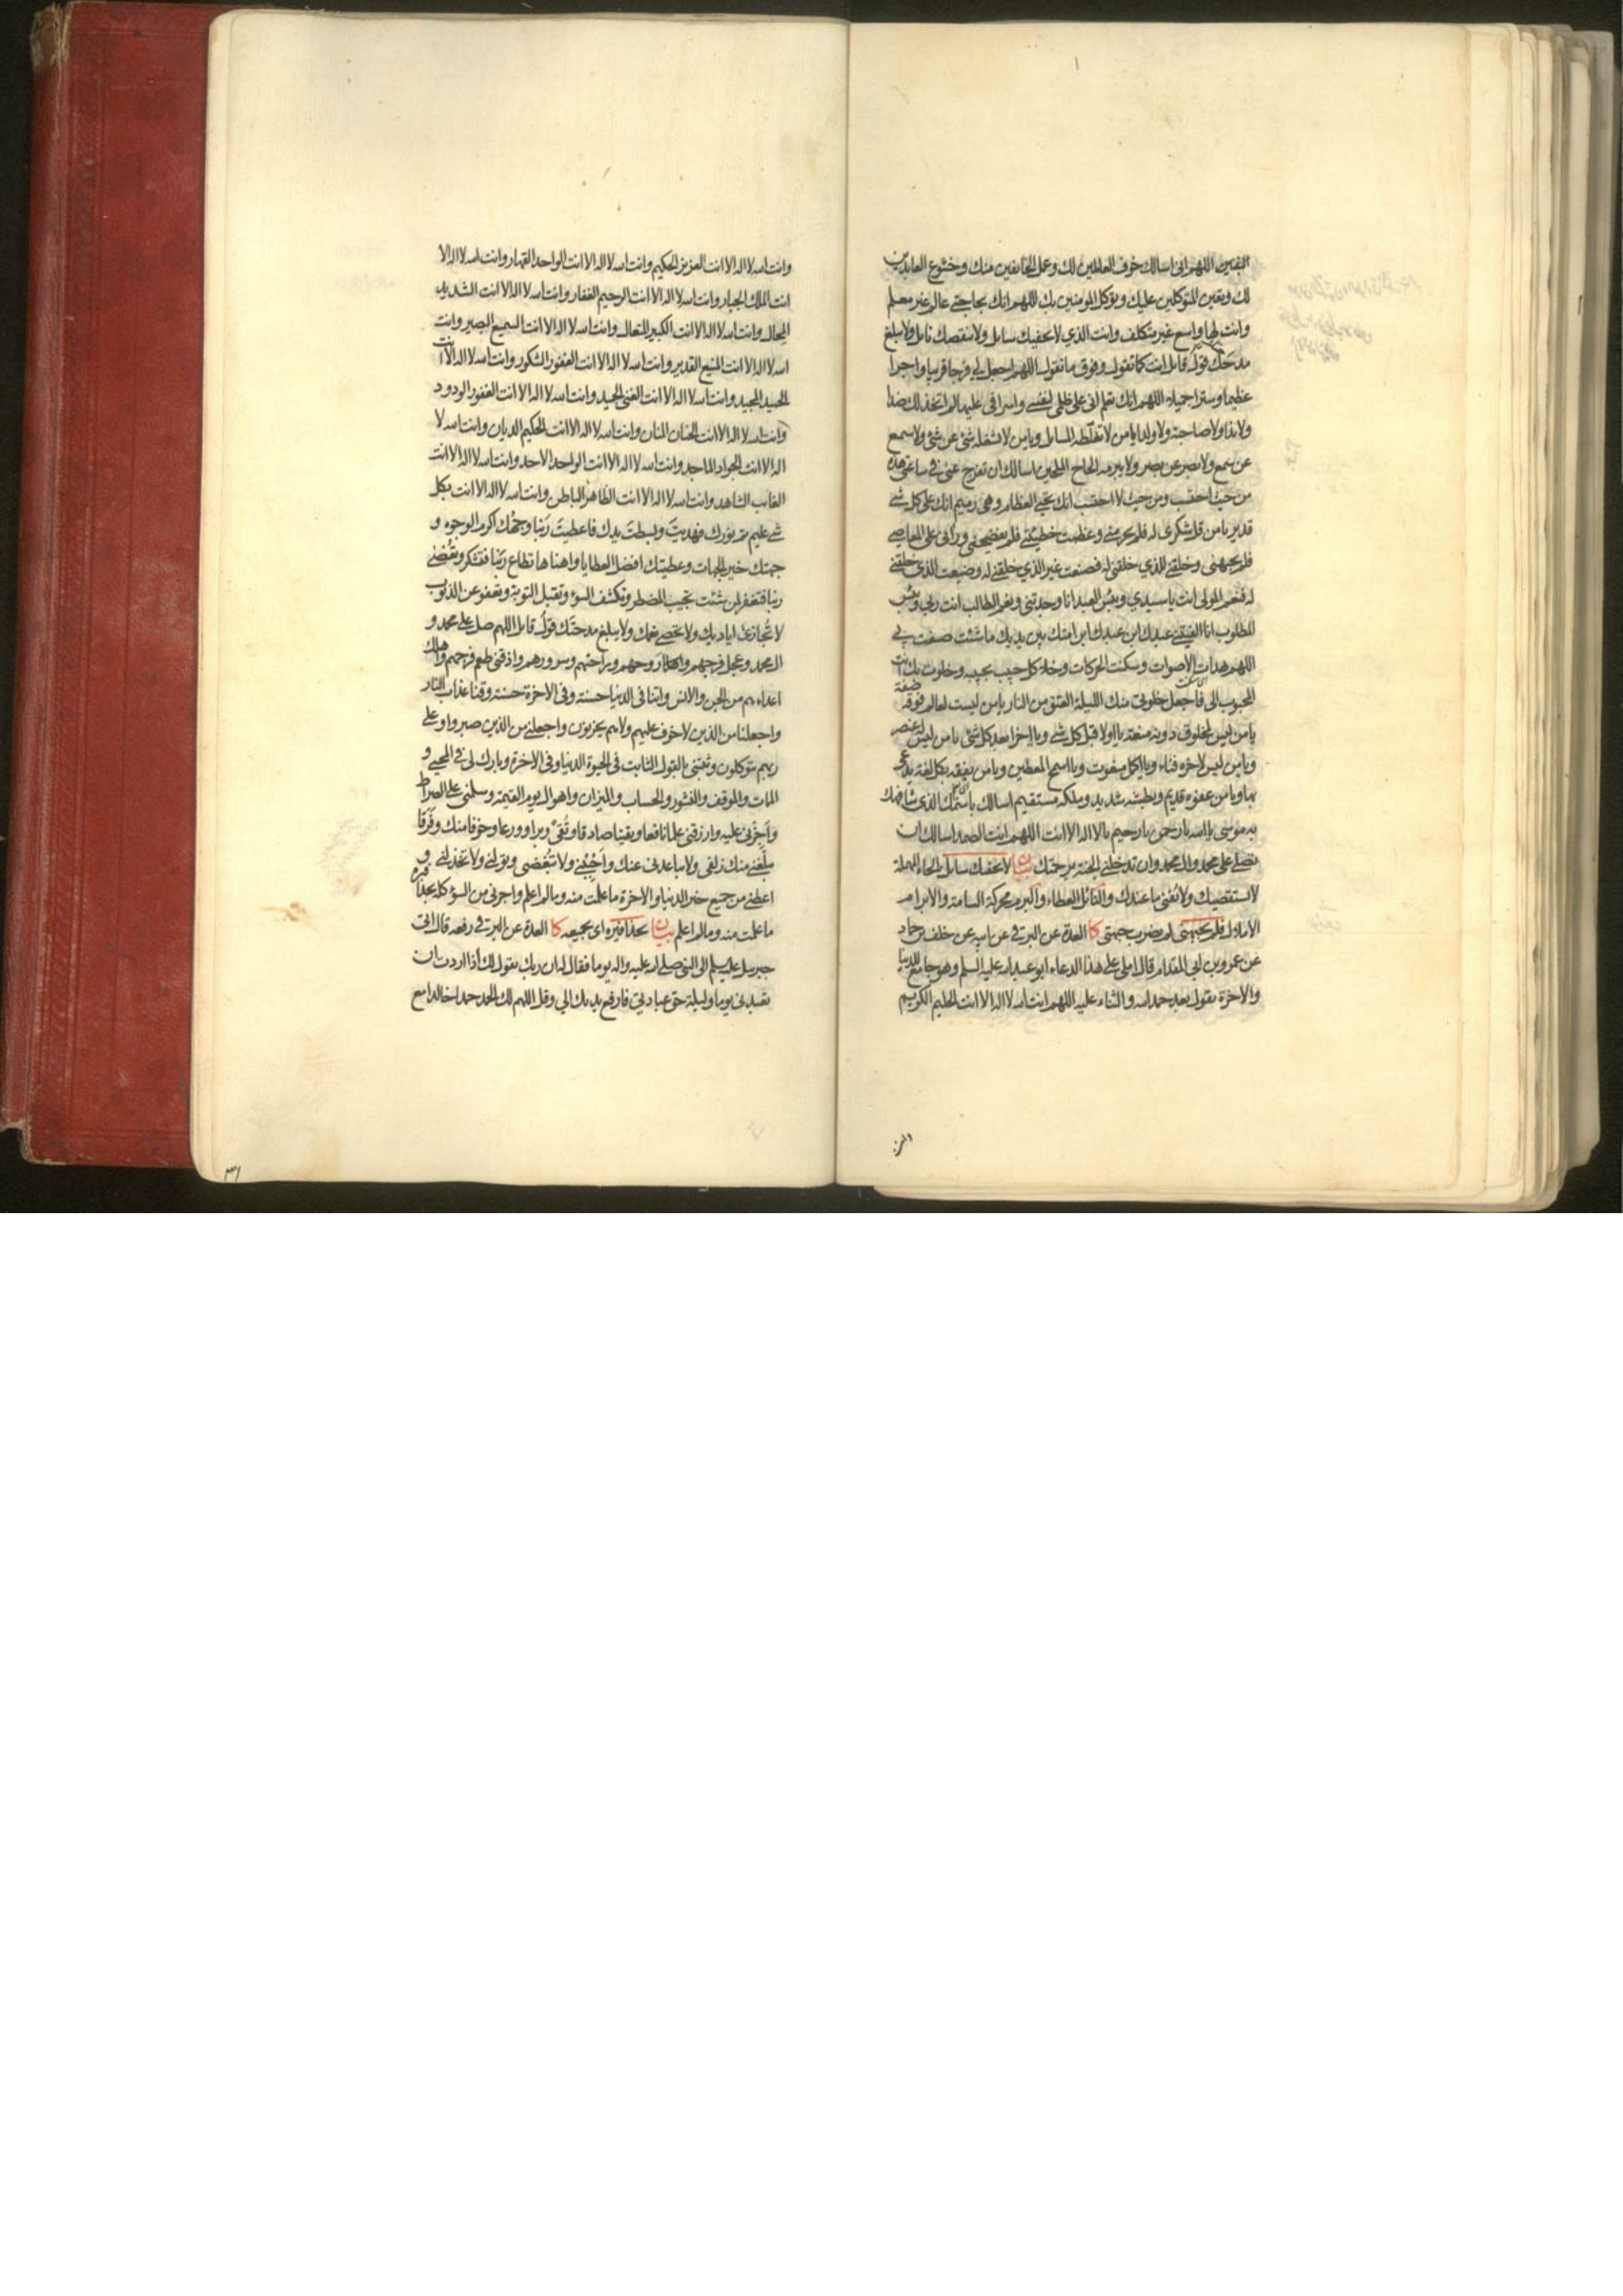 اليقين اللهم اني اسالك خوف العالمين لك وعمل الخائفين منك وخشوع العابدين
لك ويقين المتوكلين عليك وتوكل المومنين بك اللهم انك بحاجتي عالم غير معلم
وانت لها واسع غير متكلف وانت الذي لا يحفيك سائل ولا ينقصك نائل ولا يبلغ
مدحتك قول قائل انت كما تقول وفوق ما نقول اللهم اجعل لي فرجا قريبا واجرا
عظيما وسترا جميلا اللهم انك تعلم اني على ظلمي لنفسي واسرافي عليها لم اتخذ لك ضدا
ولا ندا ولا صاحبة ولا ولدا يا من لا تغلطه المسائل ويا من لا يشغله شئ عن شئ ولا سمع
عن سمع ولا بصر عن بصر ولا يبرمه الحاح الملحين اسالك ان تفرج عني في ساعتي هذه
من حيث احتسب ومن حيث لا احتسب انك تحيي العظام وهي رميم انك على كل شي
قدير يا من قل شكري له فلم يحرمني وعظمت خطيئتي فلم يفضحني وراني على المعاصي
فلم يجبهني وخلقني للذي خلقني له فصنعت غير الذي خلقني له وضيعت الذي خلقني
له فنعم المولى انت يا سيدي وبئس العبد انا وجدتني ونعم الطالب انت ربي وبئس
المطلوب انا الفيتني عبدك ابن عبدك ابن امتك بين يديك ما شئت صنعت بي
اللهم هدات الاصوات وسكنت الحركات وخلا كل حبيب بحبيبه وخلوت بك انت
المحبوب الي فاجعل خلوتي منك الليلة العتق من النار يا من ليست لعالم فوقه صفة
يا من ليس لمخلوق دونه منعة يا اولا قبل كل شي ويا اخرا بعد كل شئ يا من ليس له عنصر
ويا من ليس لاخره فناء ويا اكمل منعوت ويا اسمح المعطين ويا من يفقه بكل لغة يدعى
بها ويا من عفوه قديم وبطشه شديد وملكه مستقيم اسالك باسمك الذي شافهك
به موسى يا الله يا رحمن يا رحيم يا لا اله الا انت اللهم انت الصمد اسالك ان
تصلي على محمد وال محمد وان تدخلني الجنة برحمتك بيان لا يحفيك سائل بالحاء المهملة
لا يستقصيك ولا يفني ما عندك والنائل العطاء والبرم محركة السامة والابرام
الاملال فلم يجبهني لم يضرب جبهتي كا العدة عن البرقي عن ابيه عن خلف بن حماد
عن عمرو بن ابي المقدام قال املى علي هذا الدعاء ابو عبد الله عليه السلم وهو جامع للدنيا
والاخرة يقول بعد حمد الله والثناء عليه اللهم انت الله لا اله الا انت الحليم الكريم
وانت الله لا اله الا انت العزيز الحكيم وانت الله لا اله الا انت الواحد القهار وانت الله لا اله الا
انت الملك الجبار وانت الله لا اله الا انت الرحيم الغفار وانت الله لا اله الا انت الشديد
المحال وانت الله لا اله الا انت الكبير المتعال وانت الله لا اله الا انت السميع البصير وانت
الله لا اله الا انت المنيع القدير وانت الله لا اله الا انت الغفور الشكور وانت الله لا اله الا انت
الحميد المجيد وانت الله لا اله الا انت الغني الحميد وانت الله لا اله الا انت الغفور الودود
وانت الله لا اله الا انت الحنان المنان وانت الله لا اله الا انت الحكيم الديان وانت الله لا
اله الا انت الجواد الماجد وانت الله لا اله الا انت الواحد الاحد وانت الله لا اله الا انت
الغائب الشاهد وانت الله لا اله الا انت الظاهر الباطن وانت الله لا اله الا انت بكل
شي عليم تم نورك فهديت وبسطت يدك فاعطيت ربنا وجهك اكرم الوجوه و
جهتك خير الجهات وعطيتك افضل العطايا واهناها تطاع ربنا فتشكر وتعصى
ربنا فتغفر لمن شئت تجيب المضطر وتكشف السوء وتقبل التوبة وتعفو عن الذنوب
لا تجازى اياديك ولا تحصى نعمك ولا يبلغ مدحتك قول قائل اللهم صل على محمد و
ال محمد وعجل فرجهم وروحهم وراحتهم وسرورهم واذقني طعم فرجهم واهلك
اعداءهم من الجن والانس واتنا في الدنيا حسنة وفي الاخرة حسنة وقنا عذاب النار
واجعلنا من الذين لا خوف عليهم ولا هم يحزنون واجعلني من الذين صبروا وعلى
ربهم يتوكلون وثبتني بالقول الثابت في الحيوة الدنيا وفي الاخرة وبارك لي في المحيي و
الممات والموقف والنشور والحساب والميزان واهوال يوم القيمة وسلمني على الصراط
واجزني عليه وارزقني علما نافعا ويقينا صادقا وتقى وبرا وورعا وخوفا منك وفرقا
يبلغني منك زلفى ولا يباعدني عنك واحببني ولا تبغضني وتولني ولا تخذلني و
اعطني من جميع خير الدنيا والاخرة ما علمت منه وما لم اعلم واجرني من السوء كله بحذافيره
ما علمت منه وما لم اعلم بيان بحذافيره اي بجميعه كا العدة عن البرقي رفعه قال اتى
جبرئيل عليه السلم الى النبي صلى الله عليه واله يوما فقال له ان ربك يقول لك اذا اردت ان
تعبدني يوما وليلة حق عبادتي فارفع يديك الي وقل اللهم لك الحمد حمدا خالدا مع